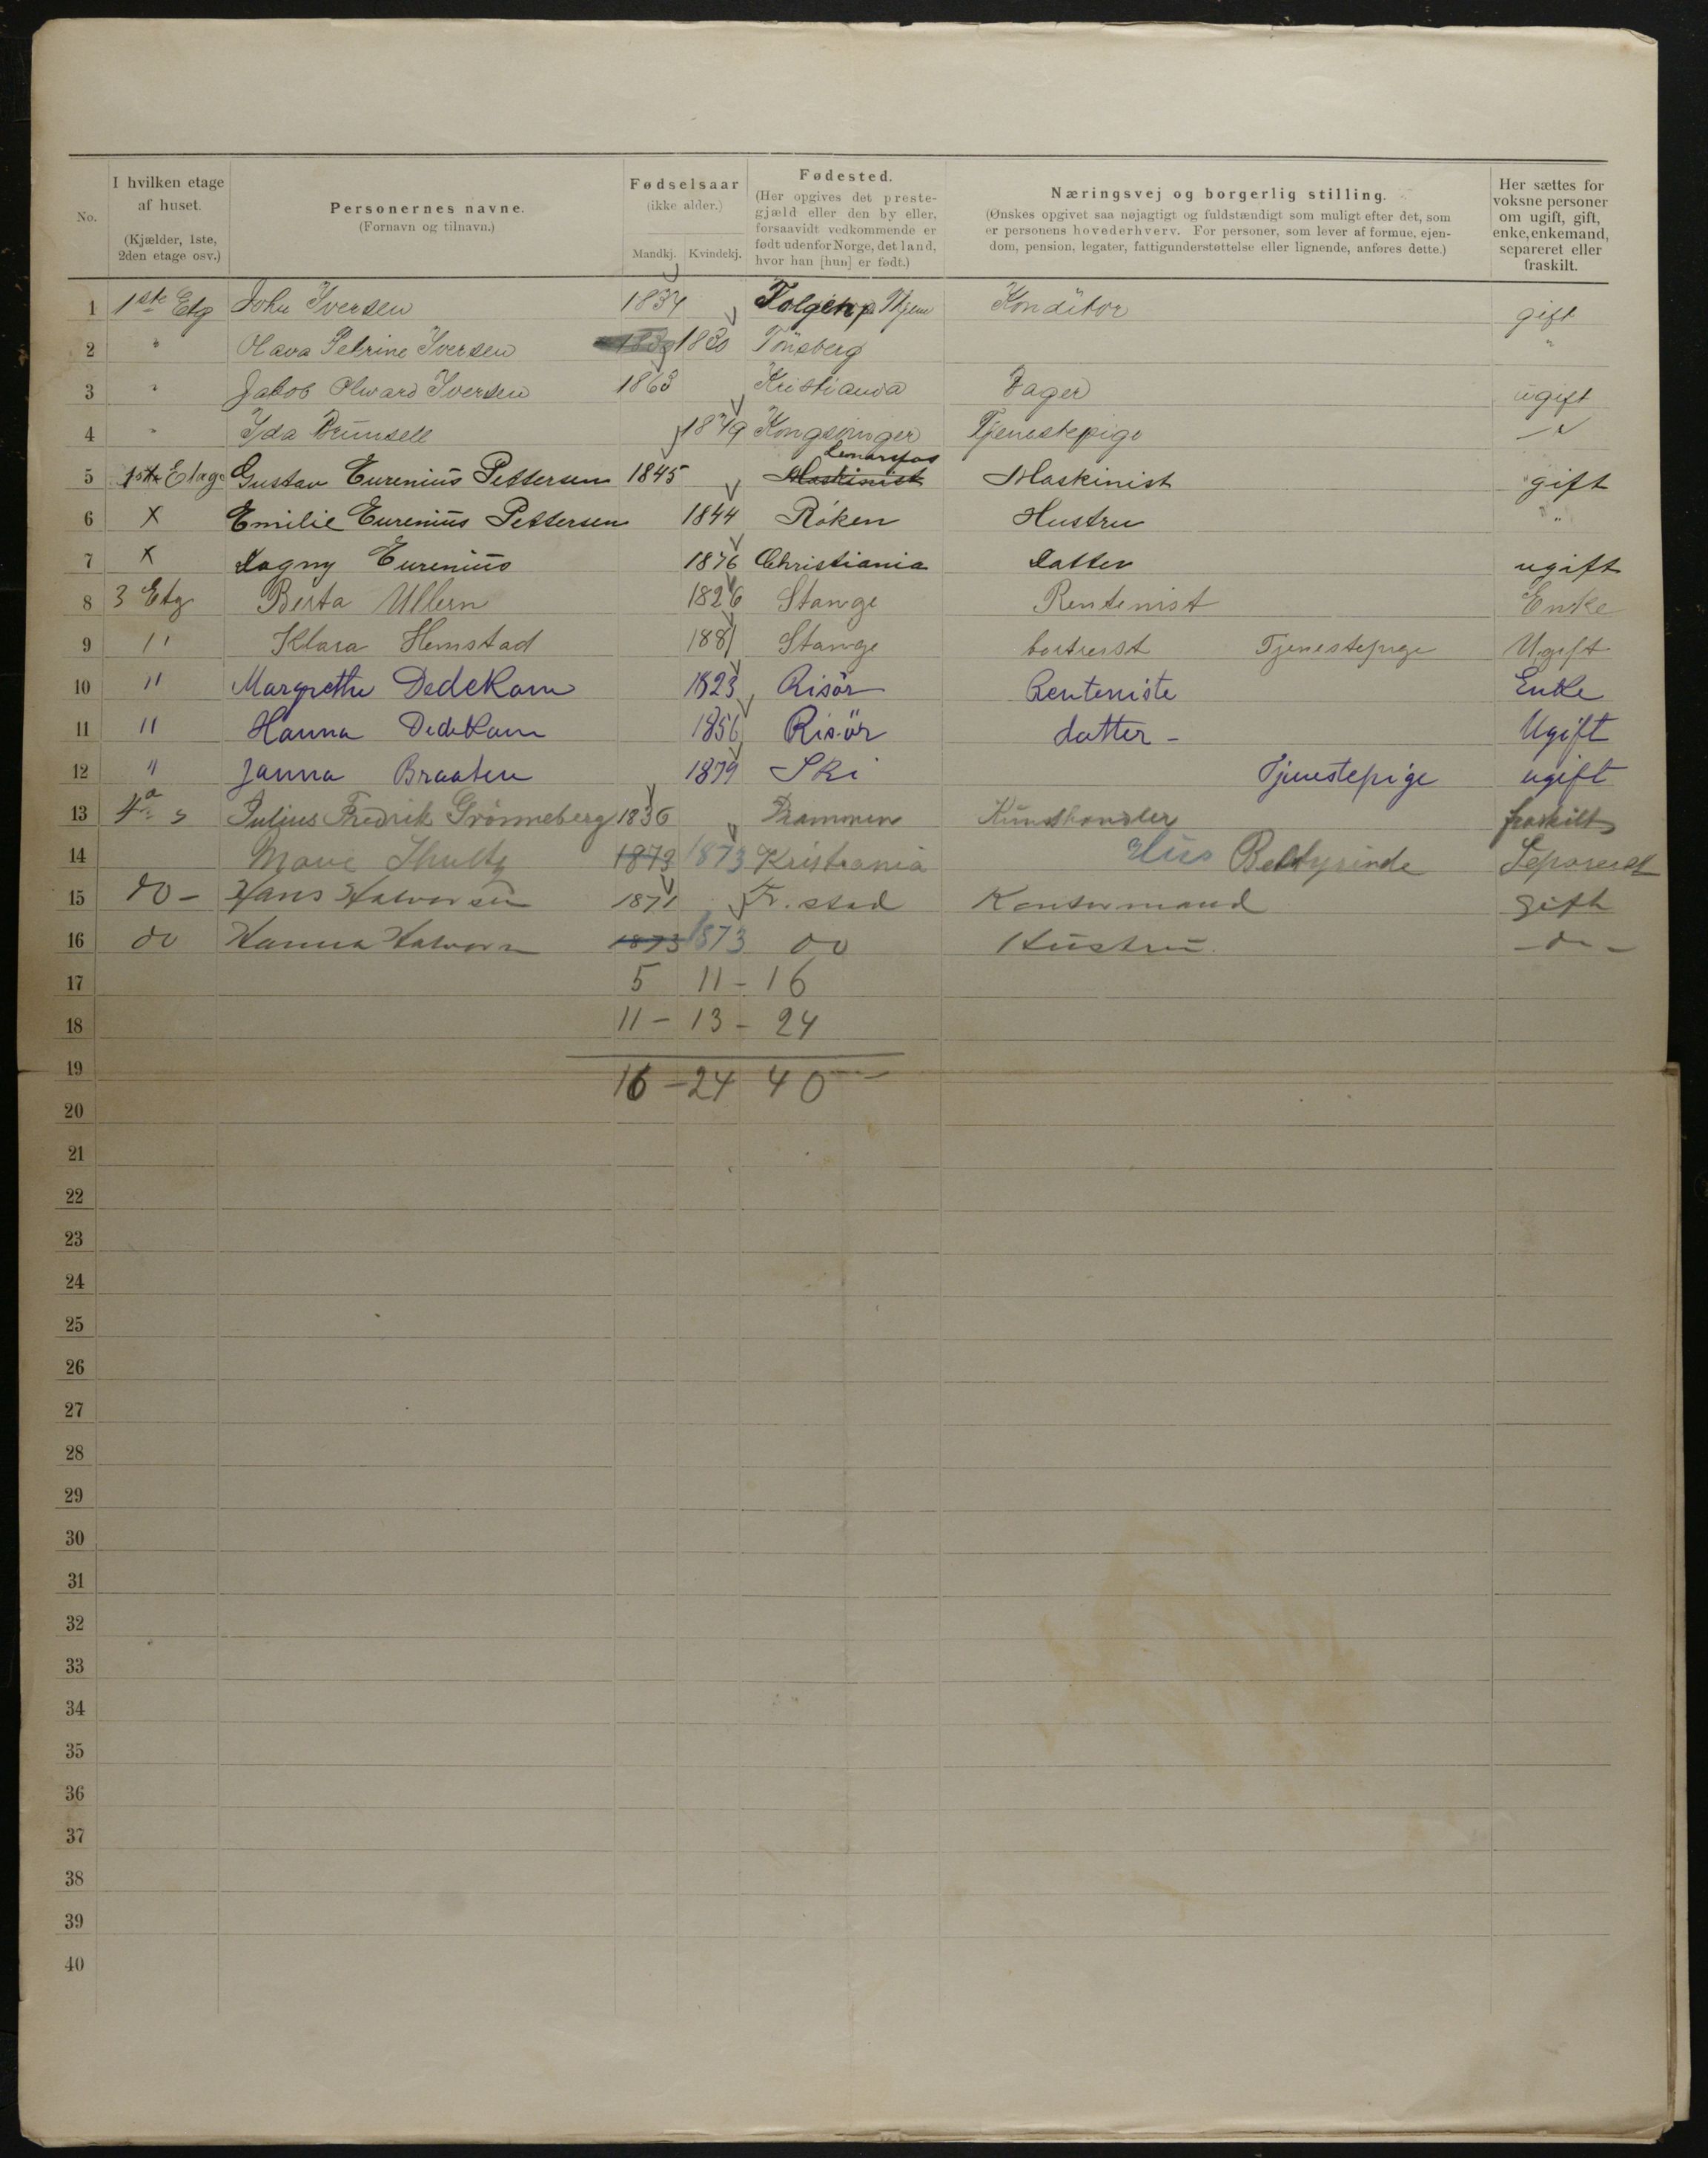 No. | I hvilken etage af huset. (Kjælder, 1ste, 2den etage osv.) | Personernes navne. (Fornavn og tilnavn.) | Fødselsaar (ikke alder.) Mandkj. Kvindekj. | Fødested. (Her opgives det prestegjæld eller den by eller, forsaavidt vedkommende er født udenfor Norge, det land, hvor han [hun] er født.) | Næringsvej og borgerlig stilling. (Ønskes opgivet saa nøjagtigt og fuldstændigt som muligt efter det, som er personens hovederhverv. For personer, som lever af formue, ejendom, pension, legater, fattigunderstøttelse eller lignende, anføres dette.) | Her sættes for voksne personer om ugift, gift, enke, enkemand, separeret eller fraskilt.
1 1ste Etg John Iversen 1834 Konditor gift
2 " Petrine Iversen 1830 Tönsberg "
3 " Jakob Iversen 1863 Kristiania ugift
4 " Ida 1849 Kongsvinger Tjenestepige
5 1ste Etage Gustav Eurenius Pettersen 1845 Maskinist Maskinist gift
6 X Emilie Eurenius Pettersen 1844 Röken Hustru "
7 X Dagny Eurenius 1876 Christiania Datter ugift
8 3 Etg Berta Ullern 1826 Stange Rentenist Enke
9 " Klara Hemstad 1881 Stange bortreist Tjenestepige Ugift
10 " Margrethe Dedekam 1823 Risör Renteniste Enke
11 " Hanna Dedekam 1856 Risör datter - Ugift
12 " Janna Braaten 1879 Ski Tjenestepige ugift
13 Julius Fredrik Grönneberg 1836 Drammen Kunsthandler fraskilt
14 1873 1873 Kristiania Hus Bestyrinde Separeret
15 do - Hans Halvorsen 1871 Fr. stad Kontormand gift
16 do Hanna 1873 1873 do Hustru - do -
17 5 11 - 16
18 11 - 13 - 24
19 16 - 24 40
20
21
22
23
24
25
26
27
28
29
30
31
32
33
34
35
36
37
38
39
40